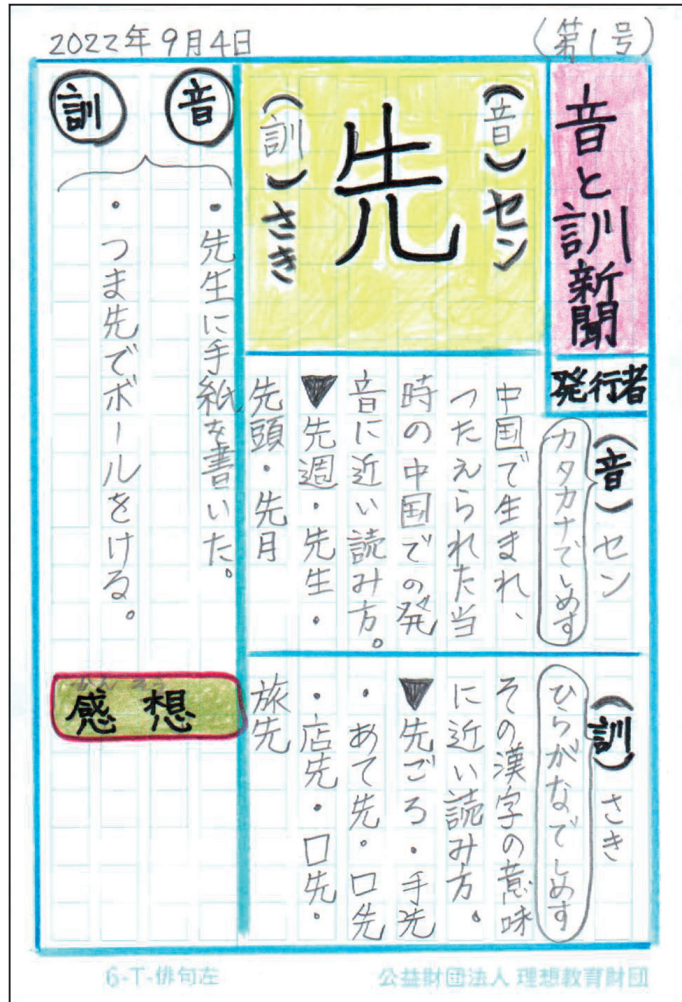 2022年9月4日
(第1号)
音と訓新聞
発行者
(音)セン
(訓)さき
先
(音)セン
カタカナでしめす
中国で生まれ、
つたえられた当
時の中国での発
音に近い読み方。
▼先週・先生・
先頭・先月
(訓)さき
ひらがなでしめす
その漢字の意味
に近い読み方。
▼先ごろ・手先
・あて先・口先
・店先・口先・
旅先
音
訓
・先生に手紙を書いた。
・つま先でボールをける。
かんそう
感想
6-T-俳句左
公益財団法人 理想教育財団